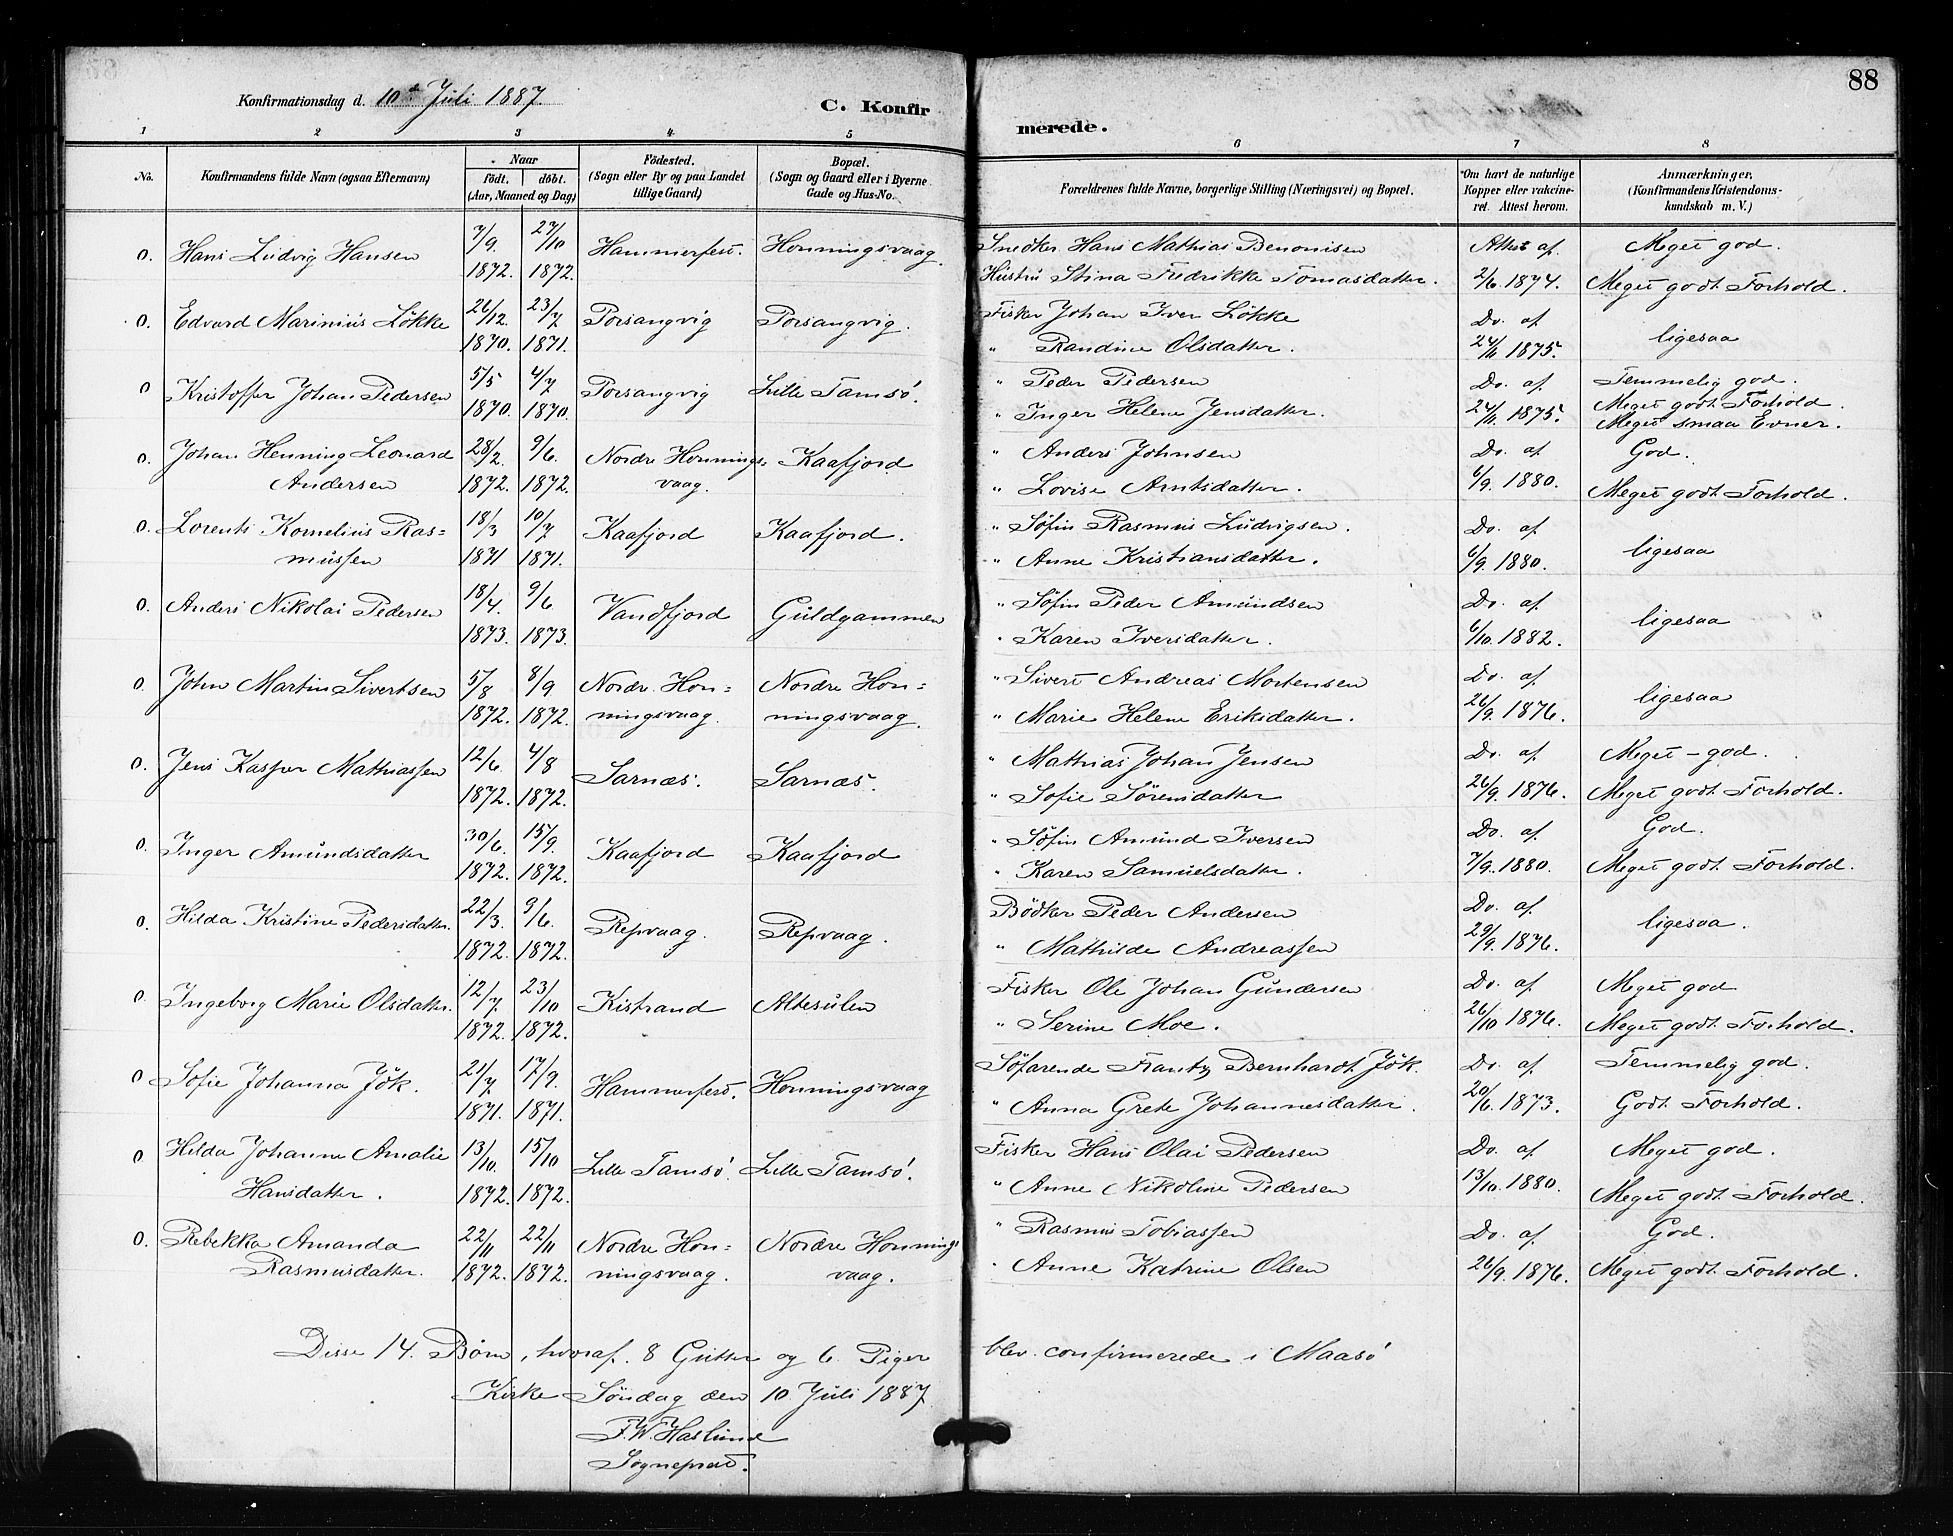 88
Konfirmationsdag d. 10de Juli 1887. C. Konfirmerede.
1 2 3 4 5 6 7 8
No. Konfirmandens fulde Navn (ogsaa Efternavn) Naar født. døbt. (Aar, Maaned og Dag) Födested. (Sogn eller By og paa Landet tillige Gaard) Bopæl. (Sogn og Gaard eller i Byerne Gade og Hus-No. Forældrenes fulde Navne, borgerlige Stilling (Næringsvei) og Bopæl. Om havt de naturlige Kopper eller vakcineret. Attest herom. Anmærkninger, (Konfirmandens Kristendomskundskab m. V.)
0. Hans Ludvig Hansen 7/9 1872. 27/10 1872. Hammerfest. Honningsvaag. Snedker Hans Mathias Benonisen Attest af Meget god.
Hustru Stina Fredrikke Tomasdatter. 2/6. 1874. Meget godt Forhold.
0. Edvard Marinius Løkke 26/12. 1870. 23/7 1871. Porsangvig Porsangvig. Fisker Johan Iver Løkke Do. af ligesaa
" Randine Olsdatter. 24/11 1875.
0 Kristoffer Johan Pedersen 5/5 1870. 4/7 1870. Porsangvig Lille Tamsø. " Peder Pedersen Do. af Temmelig god.
" Inger Helene Jensdatter. 24/11. 1875. Meget godt Forhold.
Meget smaa Evner.
0. Johan Henning Leonard 28/2. 1872. 9/6. 1872. Nordre Honnings- Kaafjord " Anders Johnsen Do. af God.
Andersen vaag. " Lovise Arntsdatter. 6/9. 1880. Meget godt Forhold.
0. Lorents Kornelius Ras= 18/3 1871 10/7 1871. Kaafjord Kaafjord. " Søfin Rasmus Ludvigsen. Do. af ligesaa
mussen " Anne Kristiansdatter. 6/9. 1880.
0. Anders Nikolai Pedersen 18/4. 1873. 9/6 1873. Vandfjord Guldgammen " Søfin Peder Amundsen Do. af ligesaa
" Karen Iversdatter. 6/10. 1882.
0. John Martin Sivertsen 5/8 1872. 8/9 1872. Nordre Hon= Nordre Hon= " Sivert Andreas Mortensen Do. af ligesaa
ningsvaag. ningsvaag. " Marie Helene Eriksdatter. 26/9. 1876.
0. Jens Kasper Mathiassen 12/6. 1872. 4/8 1872. Sarnæs. Sarnæs. " Mathias Johan Jensen Do. af Meget god.
" Sofie Sørensdatter 26/9. 1876. Meget godt Forhold.
0. Inger Amundsdatter 30/6. 1872. 15/9. 1872. Kaafjord Kaafjord " Søfin Amund Iversen Do. af God.
" Karen Samuelsdatter. 7/9. 1880. Meget godt Forhold.
0. Hilda Kristine Pedersdatter. 22/3. 1872. 9/6. 1872. Repvaag. Repvaag. Bødker Peder Andersen Do. af ligesaa.
" Mathilde Andreassen 29/9. 1876.
0. Ingeborg Marie Olsdatter. 12/7. 1872. 23/10 1872. Kistrand Altesulen Fisker Ole Johan Gundersen Do. af Meget god
" Serine Moe. 26/10 1876. Meget godt Forhold.
0 Sofie Johanna Jøk. 21/7 1871. 17/9. 1871. Hammerfest. Honningsvaag Søfarende Frantz Bernhardt Jøk. Do. af Temmelig god.
" Anna Grete Johannesdatter. 20/6. 1873. Godt Forhold.
0 Hilda Johanne Amalie 13/10. 1872. 15/10 1872. Lille Tamsø. Lille Tamsø. Fisker Hans Olai Pedersen Do. af Meget god.
Hansdatter. " Anne Nikoline Pedersen 13/10. 1880. Meget godt Forhold.
0. Rebekka Amanda 22/11 1872. 22/11 1872. Nordre Hon= Nordre Honnings " Rasmus Tobiassen Do. af God.
Rasmusdatter. ningsvaag. vaag. " Anne Katrine Olsen 26/9. 1876. Meget godt Forhold.
Disse 14. Børn, hvoraf 8 Gutter og 6 Piger blev confirmerede i Maasø
Kirke Søndag den 10 Juli 1887
F.W. Haslund
Sogneprest.